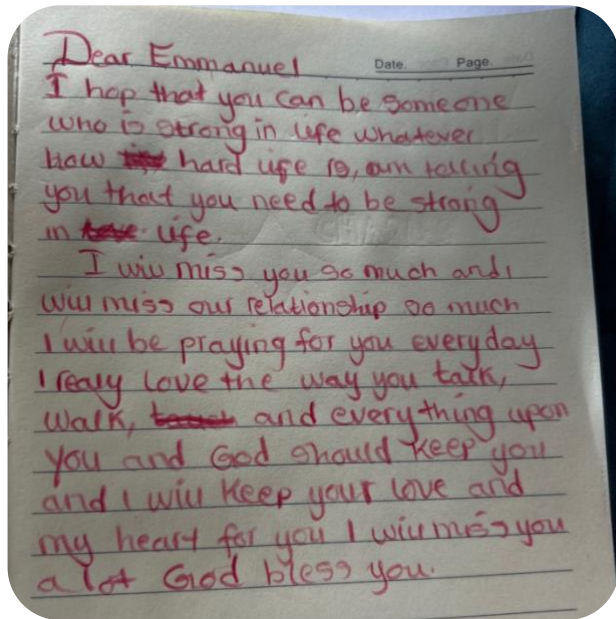 Dear Emmanuel
Date. Page.
I hop that you can be someone
who is strong in life whatever
how hard life is, am telling
you that you need to be strong
in life.
I will miss you so much and i
will miss our relationship so much
I will be praying for you everyday
I realy love the way you talk,
walk, and everything upon
you and God should keep you
and I will keep your love and
my heart for you I will miss you
a lot God bless you.